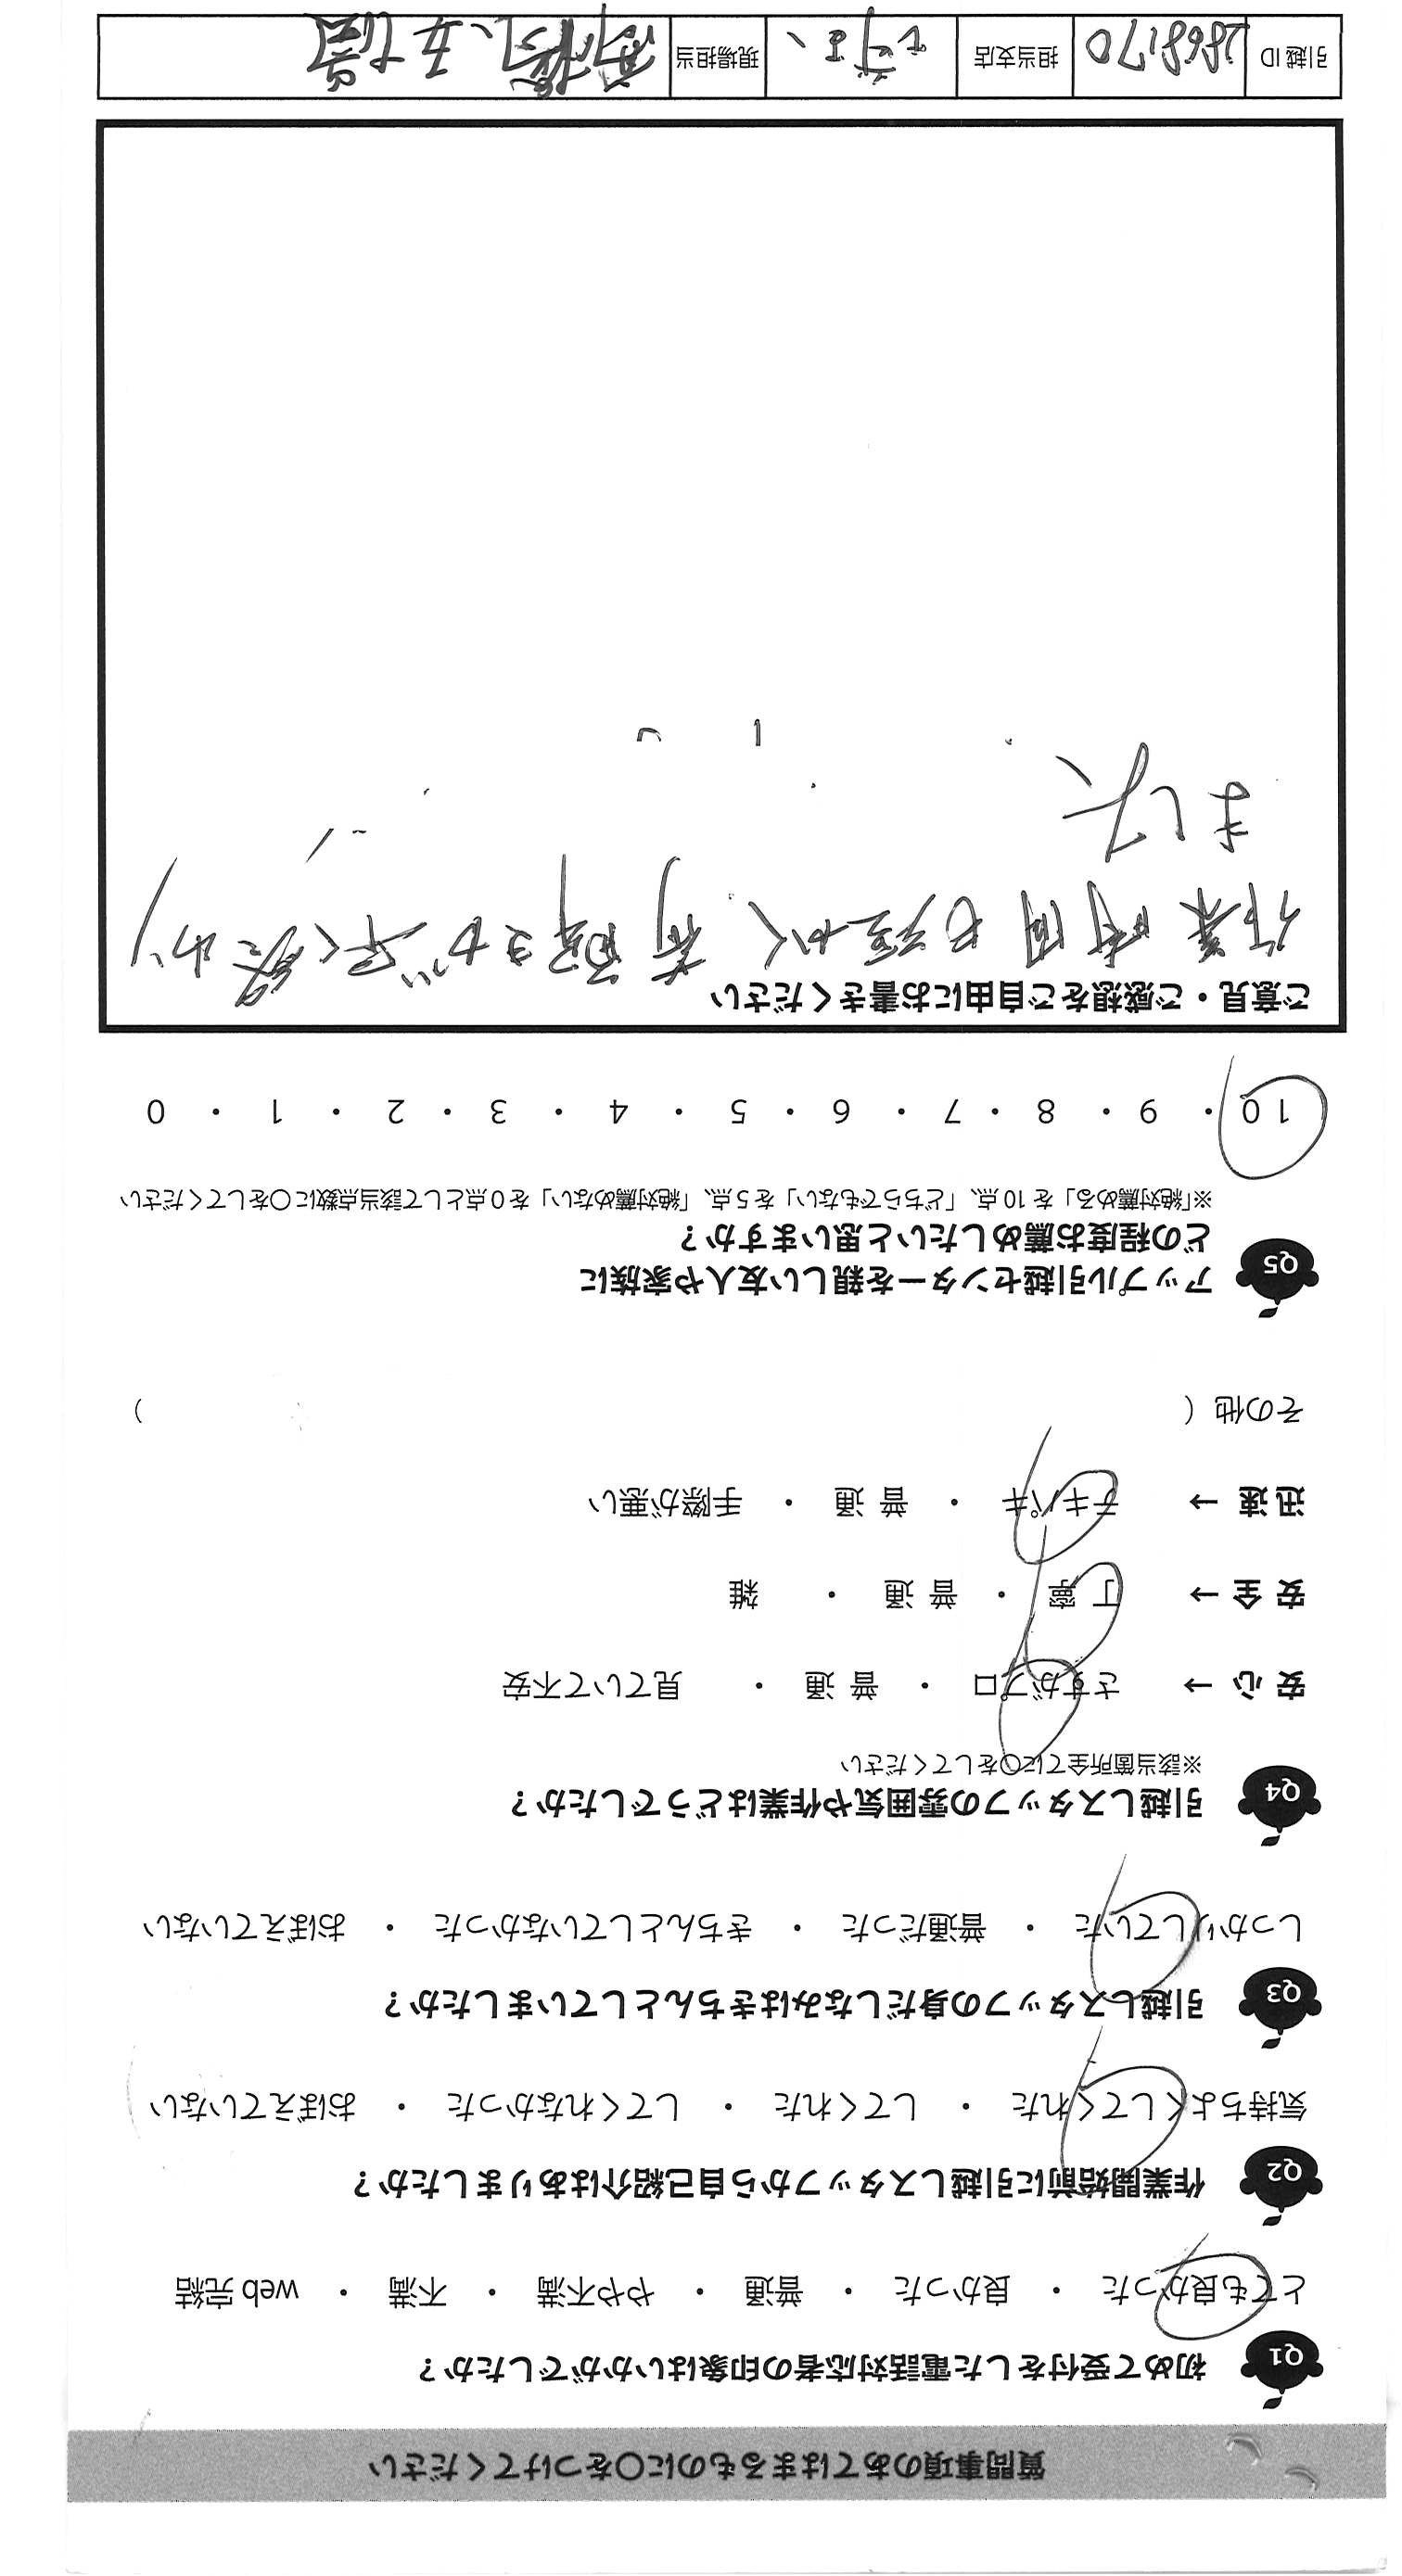 質問事項のあてはまるものに○をつけてください
Q1 初めて受付をした電話対応者の印象はいかがでしたか？
とても良かった ・ 良かった ・ 普通 ・ やや不満 ・ 不満 ・ web完結
Q2 作業開始前に引越しスタッフから自己紹介はありましたか？
気持ちよくしてくれた ・ してくれた ・ してくれなかった ・ おぼえていない
Q3 引越しスタッフの身だしなみはきちんとしていましたか？
しっかりしていた ・ 普通だった ・ きちんとしていなかった ・ おぼえていない
Q4 引越しスタッフの雰囲気や作業はどうでしたか？
※該当箇所全てに○をしてください
安心 → さすがプロ ・ 普通 ・ 見ていて不安
安全 → 丁寧 ・ 普通 ・ 雑
迅速 → テキパキ ・ 普通 ・ 手際が悪い
その他（ ）
Q5 アップル引越センターを親しい友人や家族に
どの程度お薦めしたいと思いますか？
※「絶対薦める」を10点、「どちらでもない」を5点、「絶対薦めない」を0点として該当点数に○をしてください
10 ・ 9 ・ 8 ・ 7 ・ 6 ・ 5 ・ 4 ・ 3 ・ 2 ・ 1 ・ 0
ご意見・ご感想をご自由にお書きください
作業時間も短かく、荷卸ヨが早く終わり
ました
引越ID 2868170 担当支店 現場担当